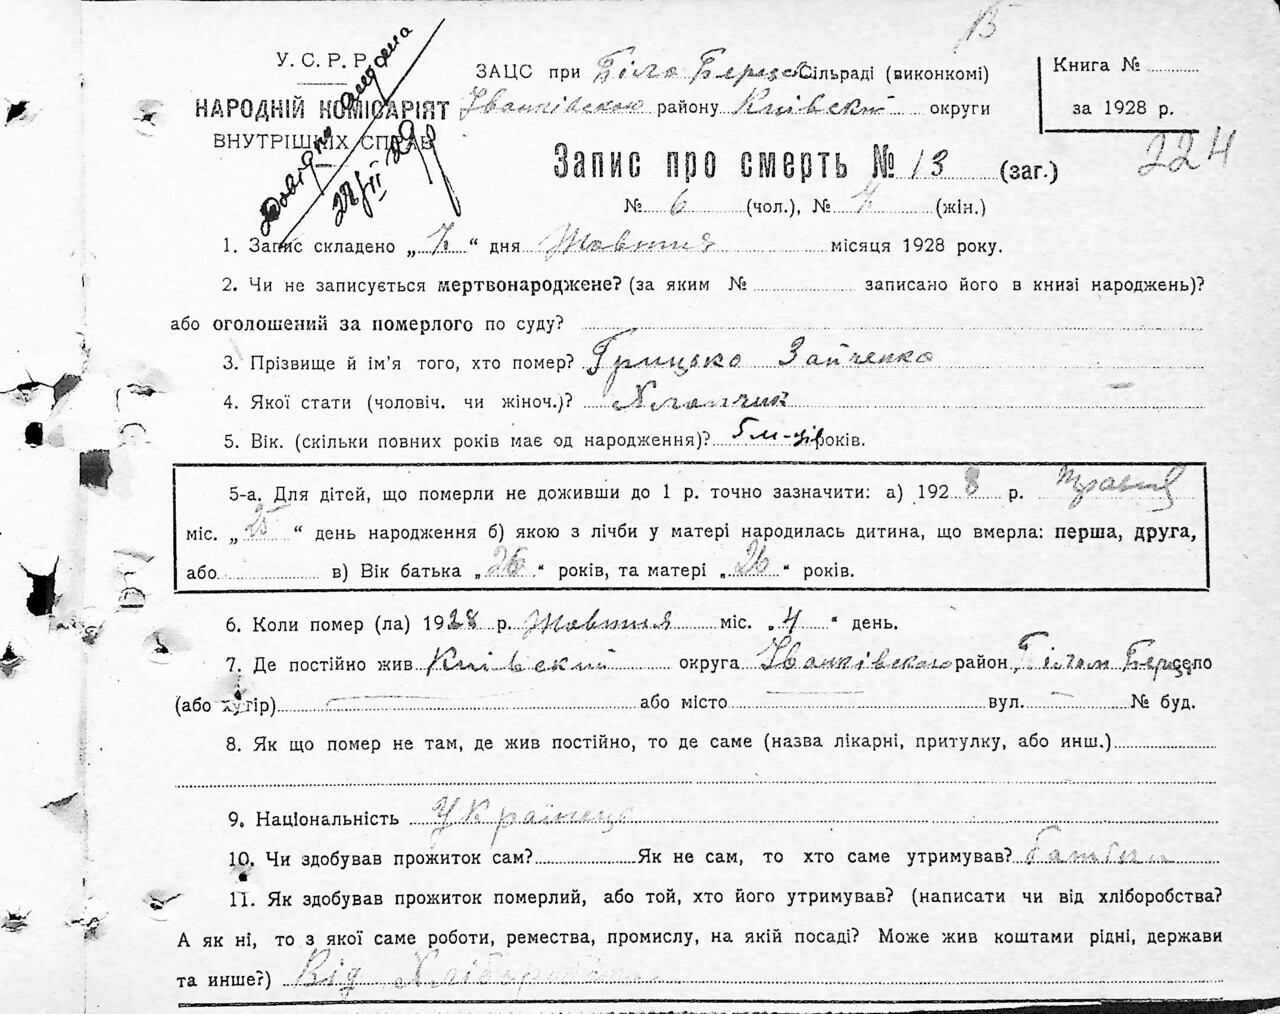 В
У. С. Р. Р.
НАРОДНІЙ КОМІСАРІЯТ
ВНУТРІШНІХ СПРАВ
Довідка видана
29
ЗАЦС при Біло Берецс Сільраді (виконкомі)
Іванківскою району Київскій округи
Книга №
за 1928 р.
224
Запис про смерть № 13 (заг.)
№ 6 (чол.), № (жін.)
1. Запис складено „ “ дня Жовтня місяця 1928 року.
2. Чи не записується мертвонароджене? (за яким № записано його в книзі народжень)?
або оголошений за померлого по суду?
3. Прізвище й ім’я того, хто помер? Грицько Зайченко
4. Якої стати (чоловіч. чи жіноч.)? Хлопчик
5. Вік. (скільки повних років має од народження)? 5 м-ців років.
5-а. Для дітей, що померли не доживши до 1 р. точно зазначити: а) 1928 р. травня
міс. „25“ день народження б) якою з лічби у матері народилась дитина, що вмерла: перша, друга,
або в) Вік батька „26“ років, та матері „26“ років.
6. Коли помер (ла) 1928 р. Жовтня міс. „4“ день.
7. Де постійно жив Київский округа Іванківскою район, Білом село
(або хутір) або місто вул. № буд.
8. Як що помер не там, де жив постійно, то де саме (назва лікарні, притулку, або инш.)
9. Національність Українець
10. Чи здобував прожиток сам? Як не сам, то хто саме утримував? батьки
11. Як здобував прожиток померлий, або той, хто його утримував? (написати чи від хліборобства?
А як ні, то з якої саме роботи, ремества, промислу, на якій посаді? Може жив коштами рідні, держави
та инше?) Від Хліборобства